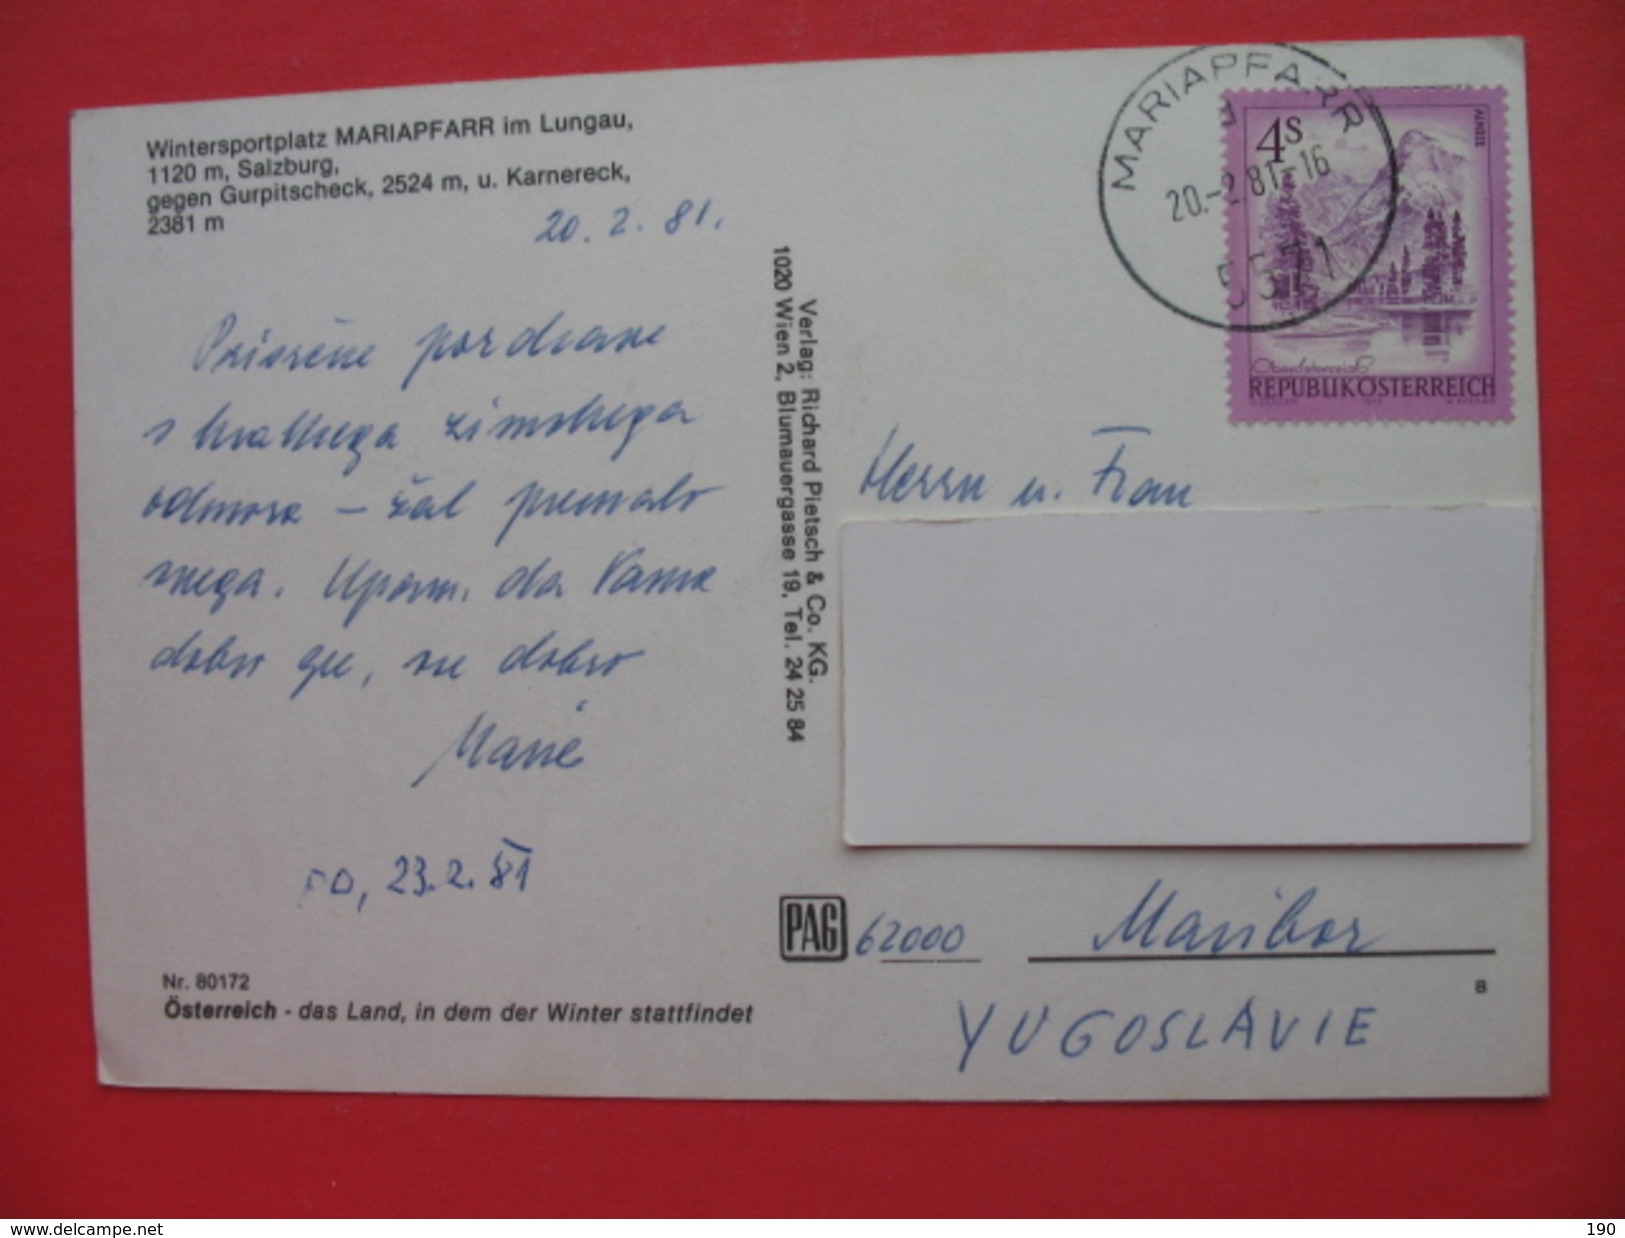 Wintersportplatz MARIAPFARR im Lungau,
1120 m, Salzburg,
gegen Gurpitscheck, 2524 m, u. Karnereck,
2381 m
20. 2. 81.
Prisrčne pozdrave
s kratkega zimskega
odmora – žal premalo
snega. Upam, da Vama
dobro gre, vse dobro
23.2.81
Nr. 80172
Österreich - das Land, in dem der Winter stattfindet
Verlag: Richard Pietsch & Co. KG.
1020 Wien 2, Blumauergasse 19, Tel. 24 25 84
MARIAPFARR
20.-2.81-16
5571
4S
ALMSEE
Oberösterreich
REPUBLIK ÖSTERREICH
Herrn u. Frau
PAG
62000 Maribor
8
YUGOSLAVIE
delcampe.net
190